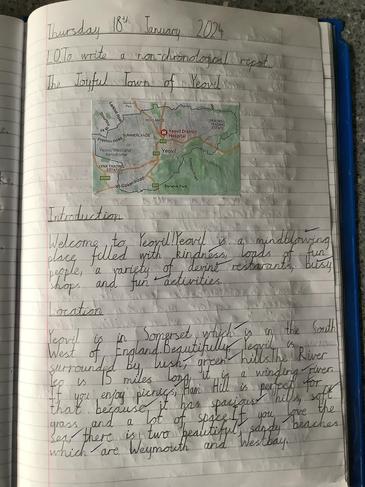 Thursday 18th January 2024
LO To write a non-chronological report.
The Joyful Town of Yeovil
SUMMERLANDS
Yeovil District
Hospital
Yeovil
Introduction
Welcome to Yeovil! Yeovil is a mindblowing
place filled with kindness, loads of fun
people, a variety of restarants, busy
shops and fun activities.
Location
Yeovil is in Somerset which is in the South
West of England. Beautifully Yeovil is
surrounded by lush, green hills. The River
Yeo is 15 miles long it is a winding river.
If you enjoy picnics, Ham Hill is perfect for
that because it has spacious hills, soft
grass and a lot of space. If you love the
sea there is two beautiful, sandy beaches
which are Weymouth and Westbay.